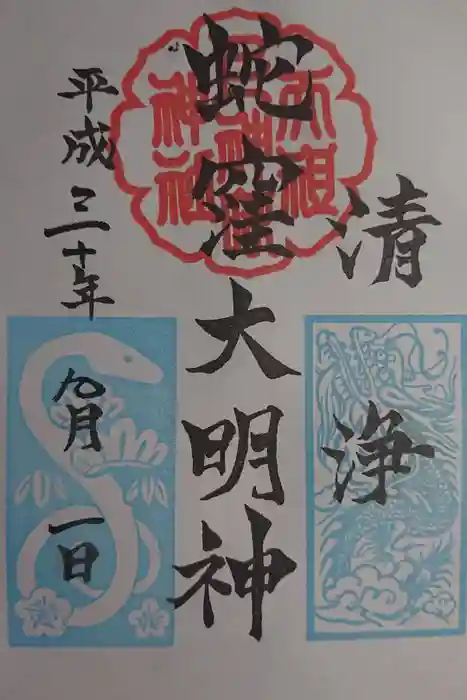 清浄
蛇窪大明神
天祖
神社
平成三十年九月一日